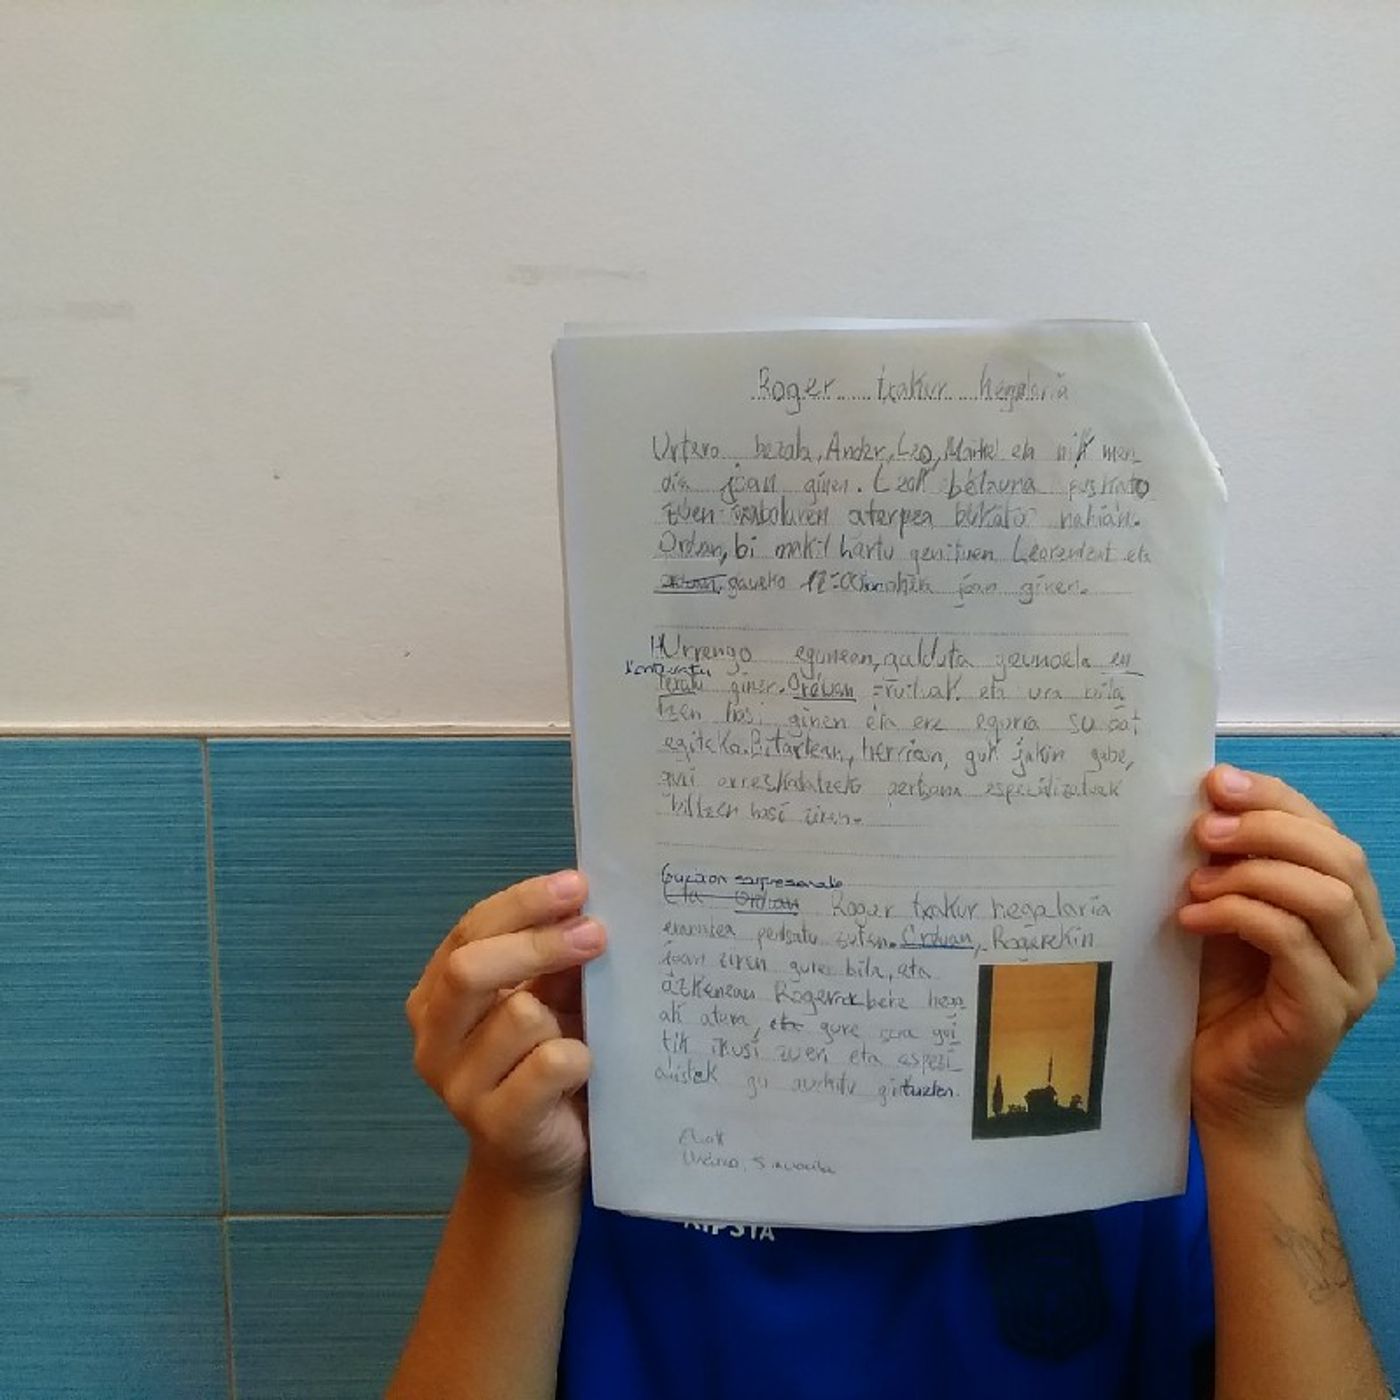 Roger txakur hegalaria
Urtero bezala, Ander, Leo, Maitel eta nik men
dia joan ginen. Leok belauna puskato
zuen txabolaren aterpea bukato nahian.
Orduan, bi makil hartu genituen Leorentzat eta
orduan, gaueko 12:00 joan ginen.
HUrrengo egunean, galduta geundela en
Konturatu
teratu ginen. Orduan fruituak eta ura bila
tzen hasi ginen eta ere egurra su bat
egiteko. Bitartean, herrian, guk jakin gabe,
gu erreskatatzeko pertsona espezializatuak
biltzen hasi ziren.
Guztion sorpresarako
Eta Orduan Roger txakur hegalaria
eramatea pentsatu zuten. Orduan, Rogerekin
joan ziren gure bila, eta
azkenean Rogerek bere hega
ak atera, eta gure goi
tik ikusi zuen eta espezi
alistek gu aurkitu gintuzten.
KIPSTA